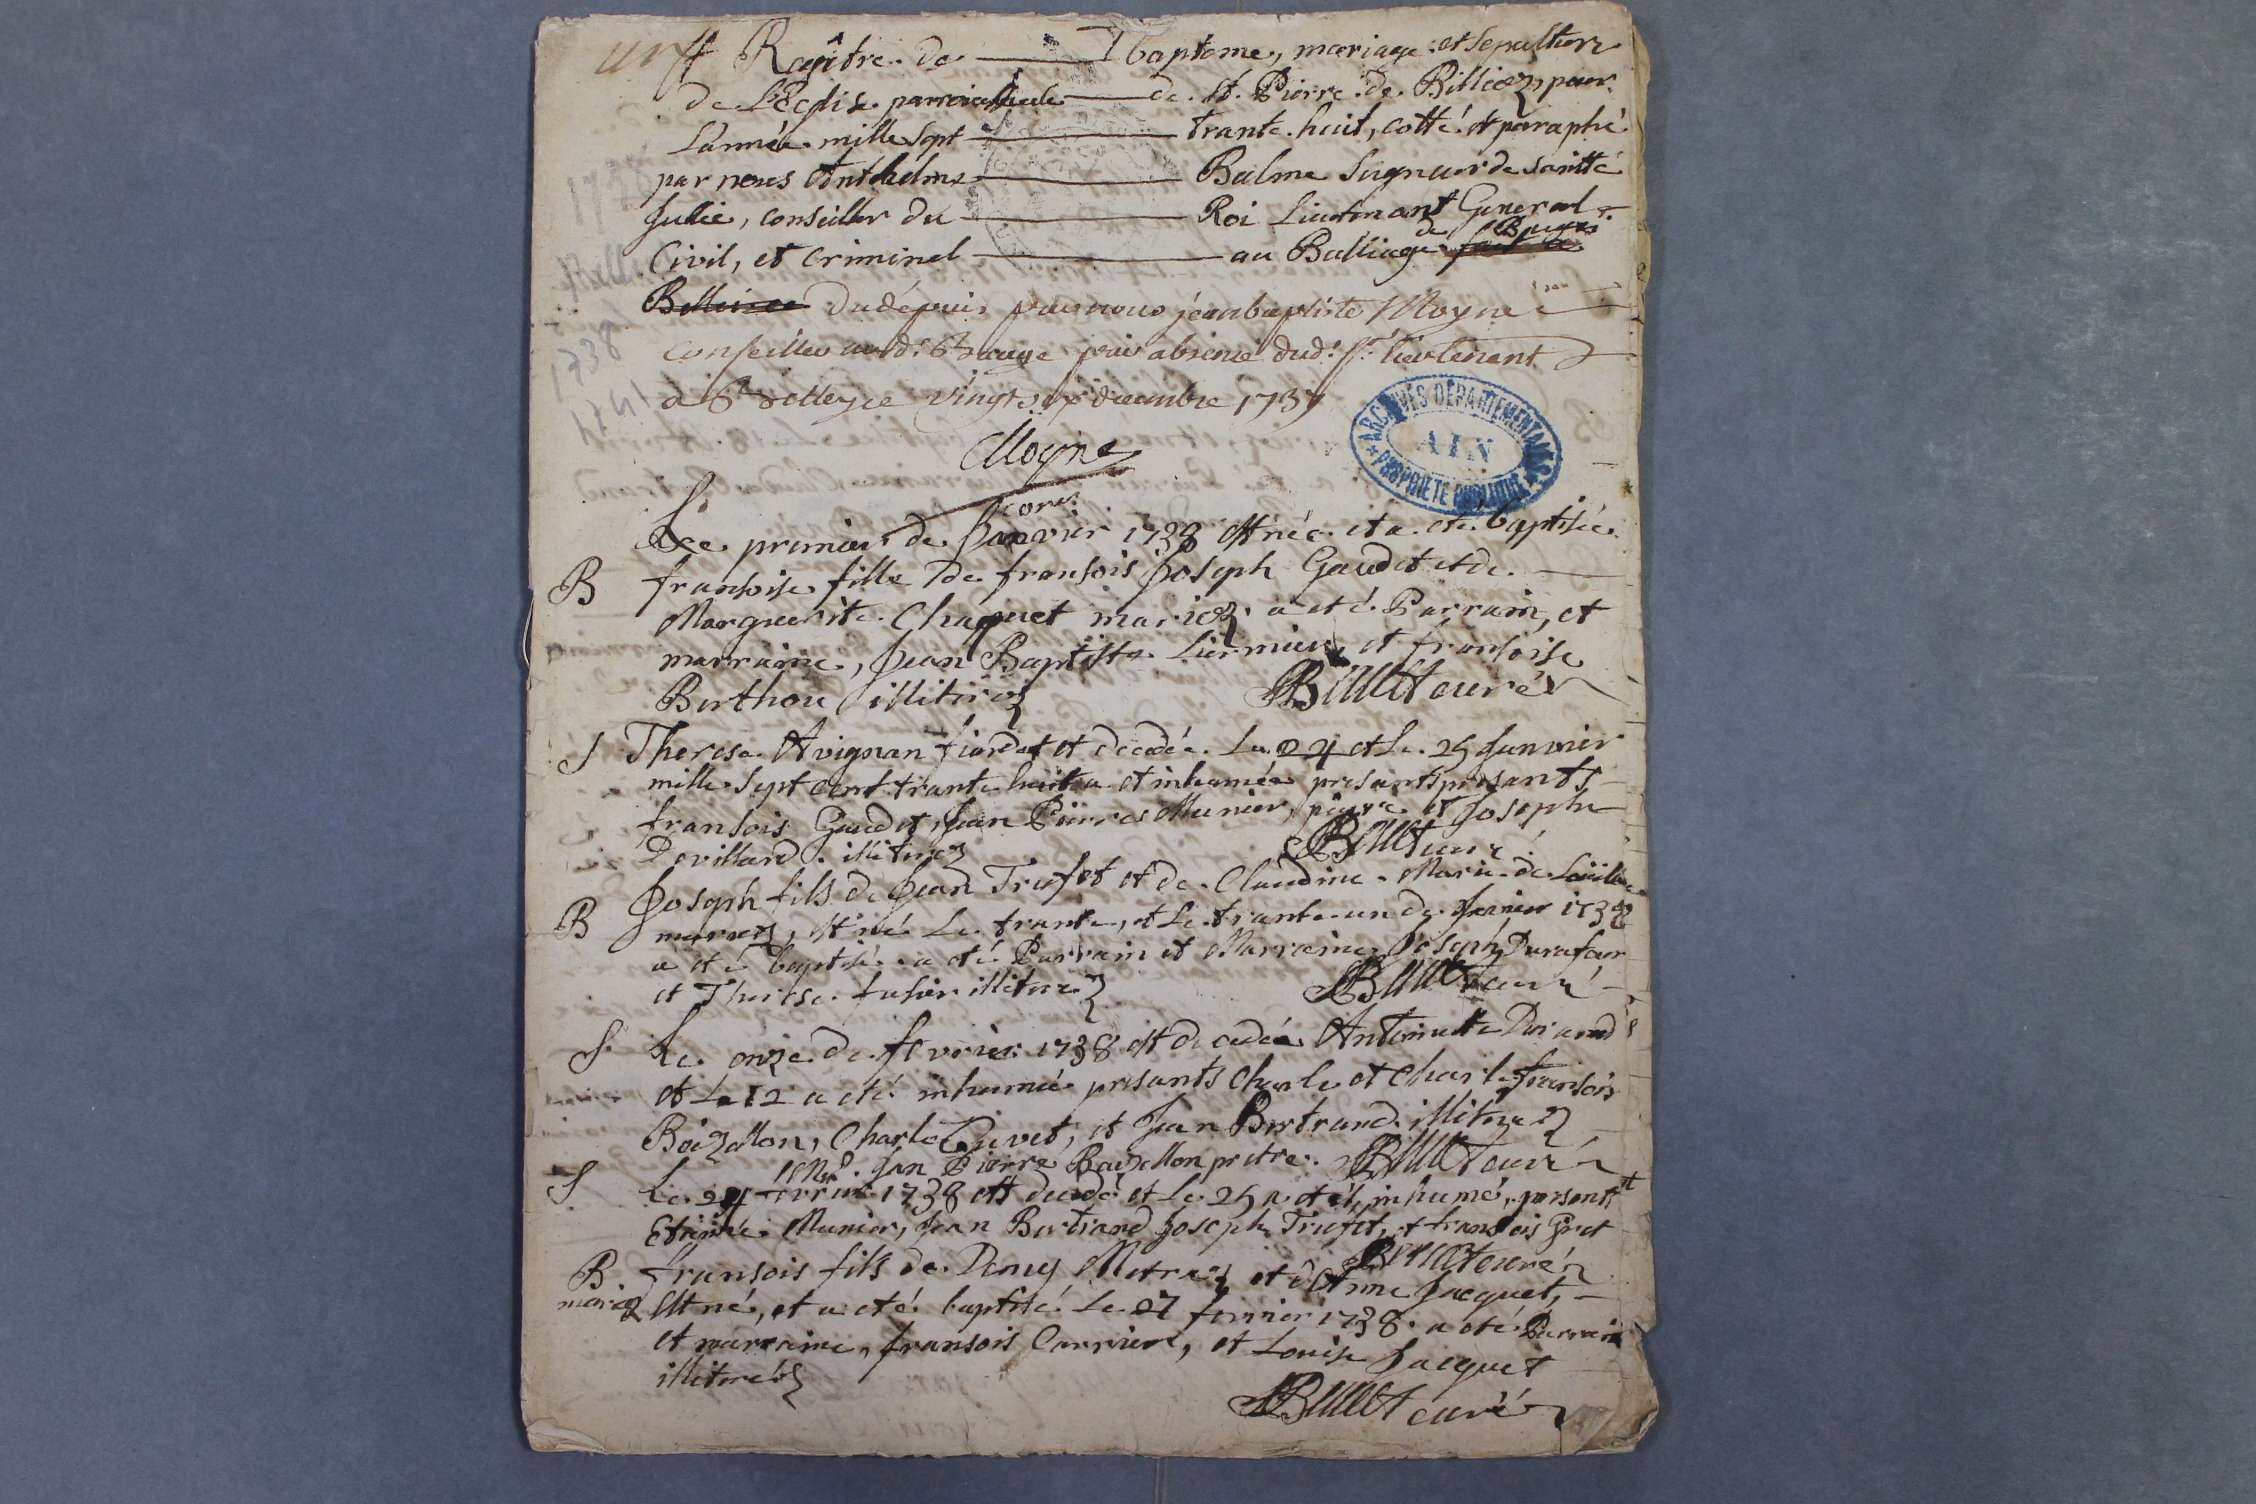 Regître de bapteme, mariage et Sepulture
de L'Eglise parroissialle de St. Pierre de Billiez pour
L'année mille Sept trante huit, cotté et paraphé
par nous Anthelme Balme Seigneur de Sainte
Julie, conseiller du Roi Lieutenant General
Civil, et Criminel au Balliage de Bugei
du depuis par nous jean baptiste Moyne
conseiller aud. Bailliage pour absence dud. Sr. lieutenant
a Belley ce vingt six decembre 1737
ARCHIVES DÉPARTEMENTALES
AIN
PROPRIÉTÉ PUBLIQUE
Moyne
Le premier de Janvier 1738 est née et a eté baptisée
B fransoise fille de fransois Joseph Gaudet et de
Marguerite Chapuet mariez a eté Parrain, et
marraine, Jean Baptiste Liermieu, et fransoise
Berthou illiterez Billiet curé
S Therese Avignan est decedée Le 24 et Le 25 Janvier
mille Sept cent trante huit a eté inhumée presants presants
fransois Gaudet, Jean Pierre Munier, et Joseph
Devillard illiterez Billiet curé
B Joseph fils de Jean Trufet et de Claudine Marie de
mariez, est né Le trante, et Le trante un de Janvier 1738
a eté baptisé a eté Parrain et Marraine Joseph Durafour
et Therese illiterez Billiet curé
S Le onze de fevrier 1738 est decedée Antoinette Durand
et Le 12 a eté inhumée presants Charle et Charle fransois
Boizollon, Charle Cuvet, et Jean Bertrand illiterez
Mre. Jan Pierre Boizollon pretre. Billiet curé
S Le 24 fevrier 1738 est decedé et Le 25 a eté inhumé, presants
Etienne Munier, Jean Bertrand Joseph Trufet, et fransois Gret
Billiet curé
B fransois fils de Deny Metraz et d'Anne Jacquet,
mariez est né, et a eté baptisé Le 27 fevrier 1738. a eté Parrain
et marraine, fransois Carrier, et Louise Jacquet
illiteréz
Billiet curé